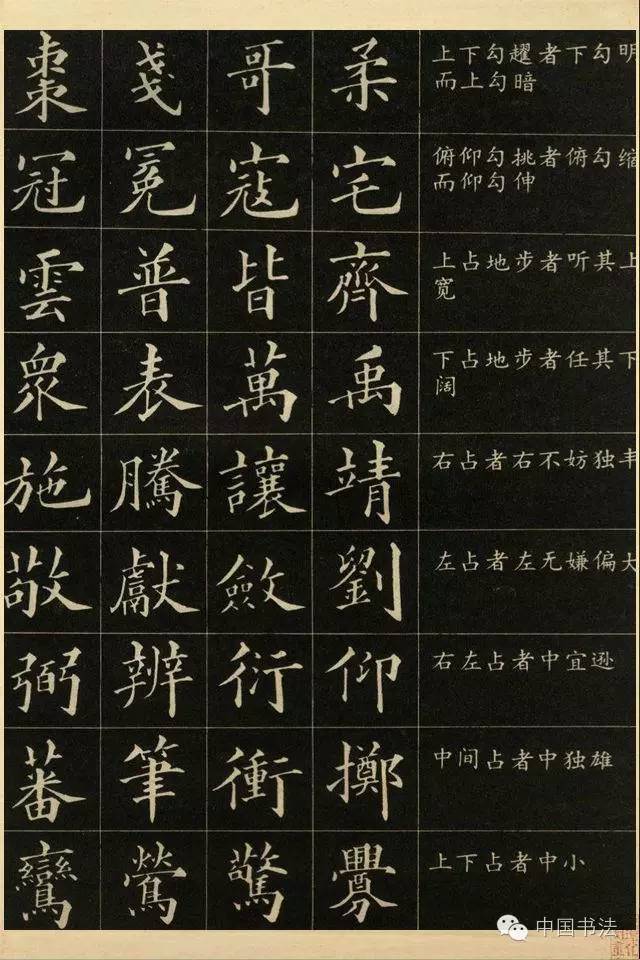 棗 戔 哥 柔
上下勾趯者下勾明
而上勾暗
冠 冕 寇 宅
俯仰勾挑者俯勾缩
而仰勾伸
雲 普 皆 齊
上占地步者听其上
宽
衆 表 萬 禹
下占地步者任其下
阔
施 騰 讓 靖
右占者右不妨独丰
敬 獻 斂 劉
左占者左无嫌偏大
弼 辨 衍 仰
右左占者中宜逊
蕃 筆 衝 擲
中间占者中独雄
鸞 鶯 驚
上下占者中小
中国书法